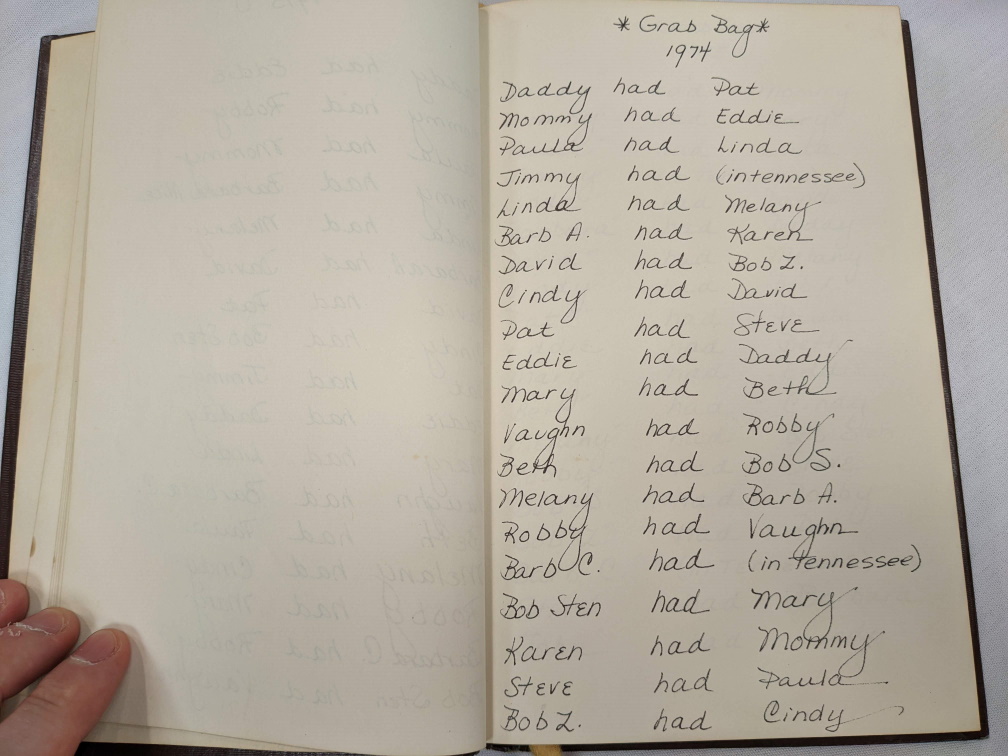 *Grab Bag*
1974
Daddy had Pat
Mommy had Eddie
Paula had Linda
Jimmy had (in tennessee)
Linda had Melany
Barb A. had Karen
David had Bob Z.
Cindy had David
Pat had Steve
Eddie had Daddy
Mary had Beth
Vaughn had Robby
Beth had Bob S.
Melany had Barb A.
Robby had Vaughn
Barb C. had (in tennessee)
Bob Sten had Mary
Karen had Mommy
Steve had Paula
Bob Z. had Cindy